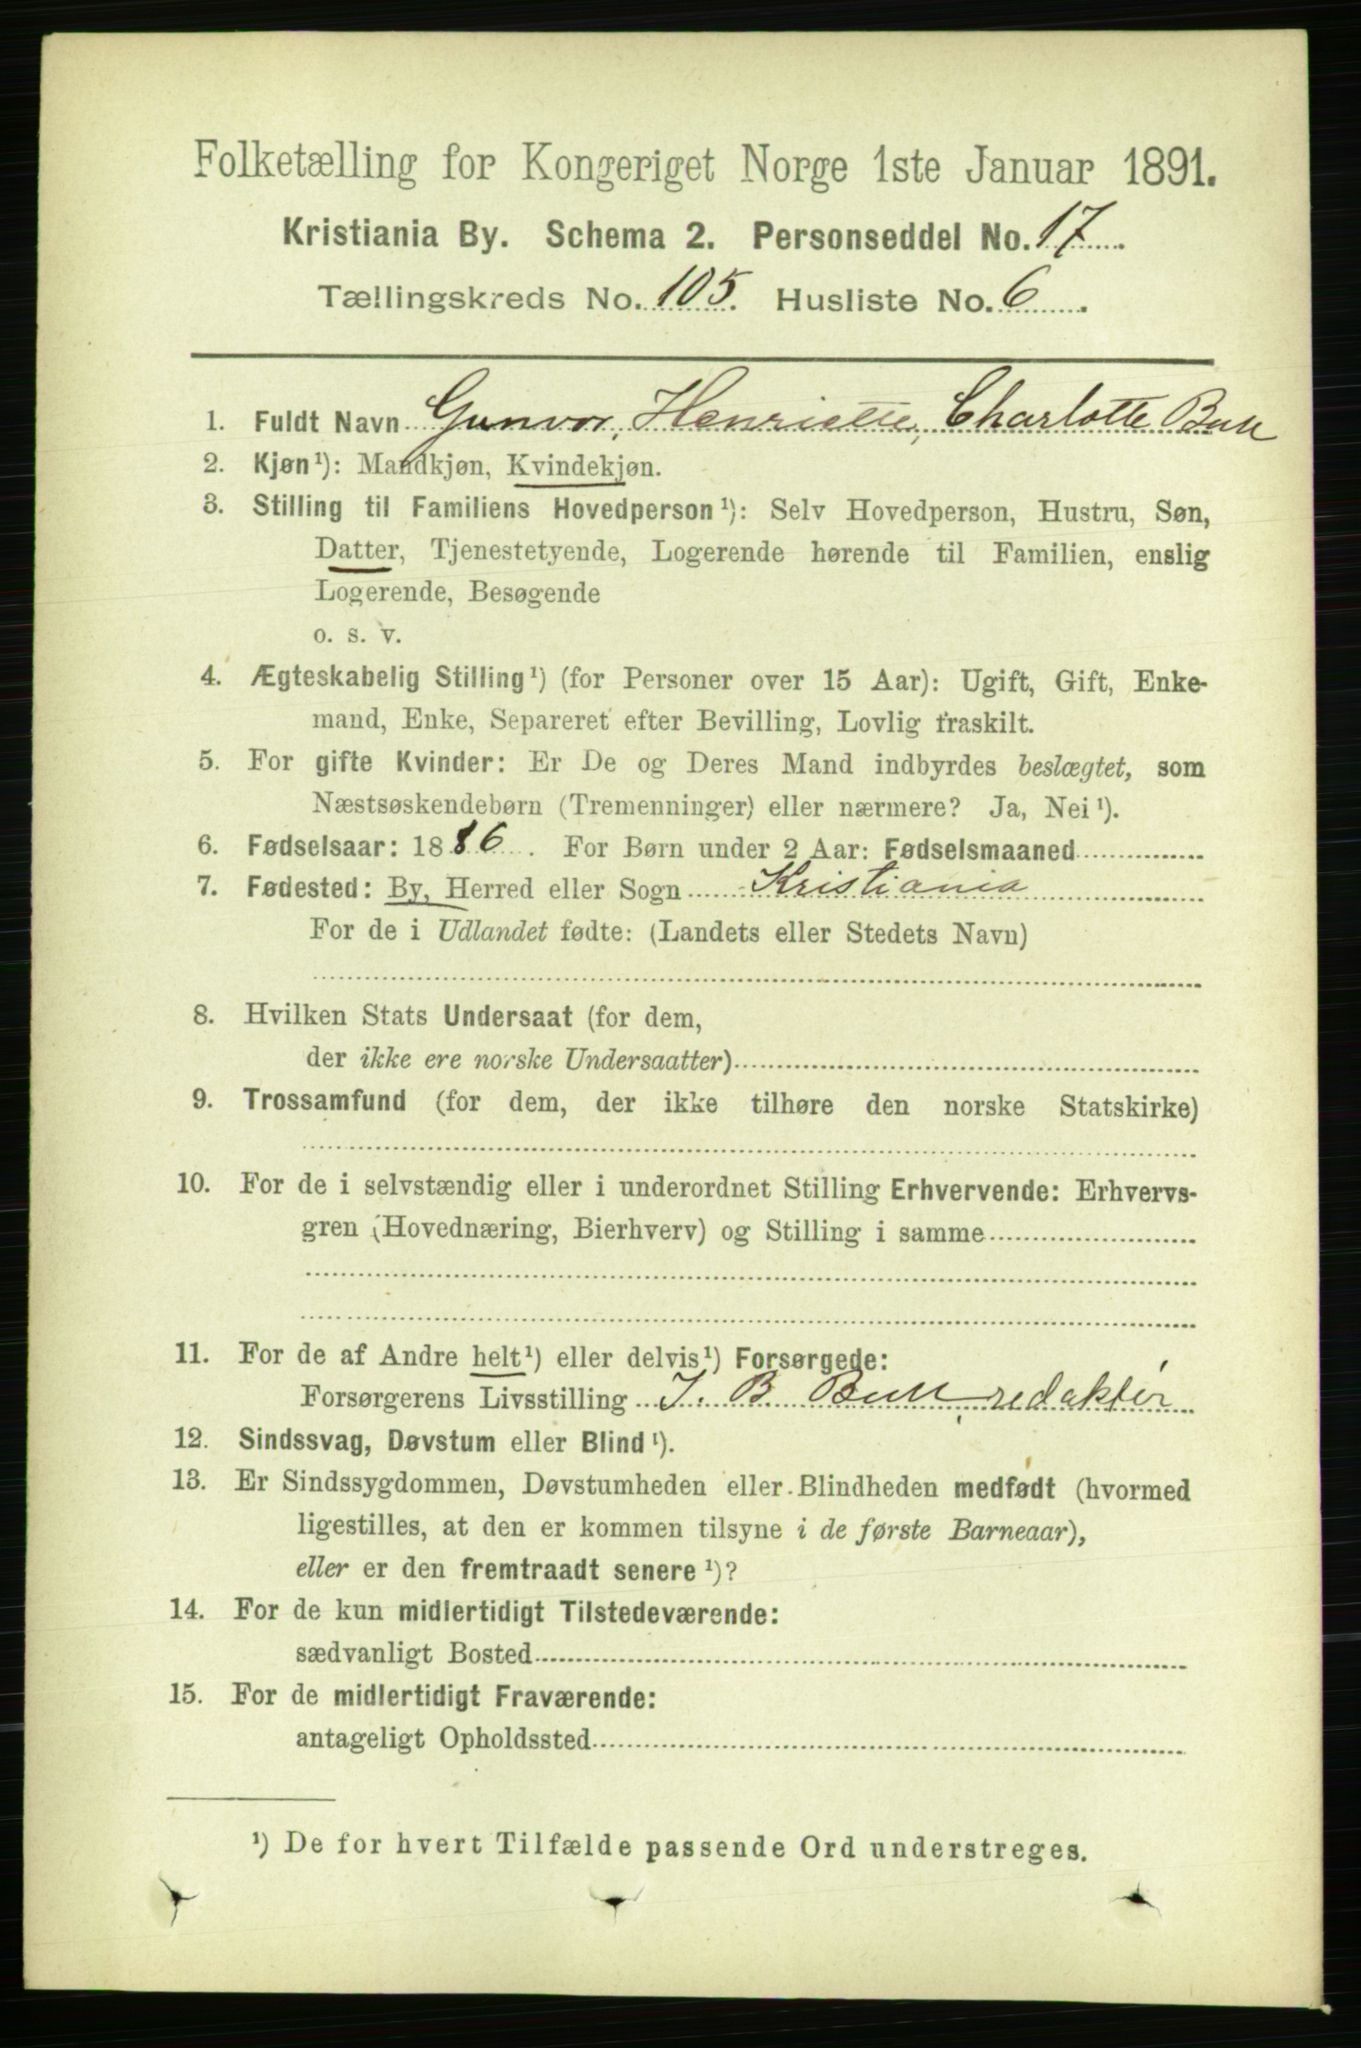 Folketælling for Kongeriget Norge 1ste Januar 1891.
Kristiania By. Schema 2. Personseddel No. 17
Tællingskreds No. 105. Husliste No. 6
1. Fuldt Navn Gunvor, Henriette, Charlotte Bull
2. Kjøn¹): Mandkjøn, Kvindekjøn.
3. Stilling til Familiens Hovedperson¹): Selv Hovedperson, Hustru, Søn,
Datter, Tjenestetyende, Logerende hørende til Familien, enslig
Logerende, Besøgende
o. s. v.
4. Ægteskabelig Stilling¹) (for Personer over 15 Aar): Ugift, Gift, Enke-
mand, Enke, Separeret efter Bevilling, Lovlig fraskilt.
5. For gifte Kvinder: Er De og Deres Mand indbyrdes beslægtet, som
Næstsøskendebørn (Tremenninger) eller nærmere? Ja, Nei¹).
6. Fødselsaar: 1886. For Børn under 2 Aar: Fødselsmaaned
7. Fødested: By, Herred eller Sogn Kristiania
For de i Udlandet fødte: (Landets eller Stedets Navn)
8. Hvilken Stats Undersaat (for dem,
der ikke ere norske Undersaatter)
9. Trossamfund (for dem, der ikke tilhøre den norske Statskirke)
10. For de i selvstændig eller i underordnet Stilling Erhvervende: Erhvervs-
gren (Hovednæring, Bierhverv) og Stilling i samme
11. For de af Andre helt¹) eller delvis¹) Forsørgede:
Forsørgerens Livsstilling J. B. Bull, redaktør
12. Sindssvag, Døvstum eller Blind¹).
13. Er Sindssygdommen, Døvstumheden eller Blindheden medfødt (hvormed
ligestilles, at den er kommen tilsyne i de første Barneaar),
eller er den fremtraadt senere¹)?
14. For de kun midlertidigt Tilstedeværende:
sædvanligt Bosted
15. For de midlertidigt Fraværende:
antageligt Opholdssted
¹) De for hvert Tilfælde passende Ord understreges.